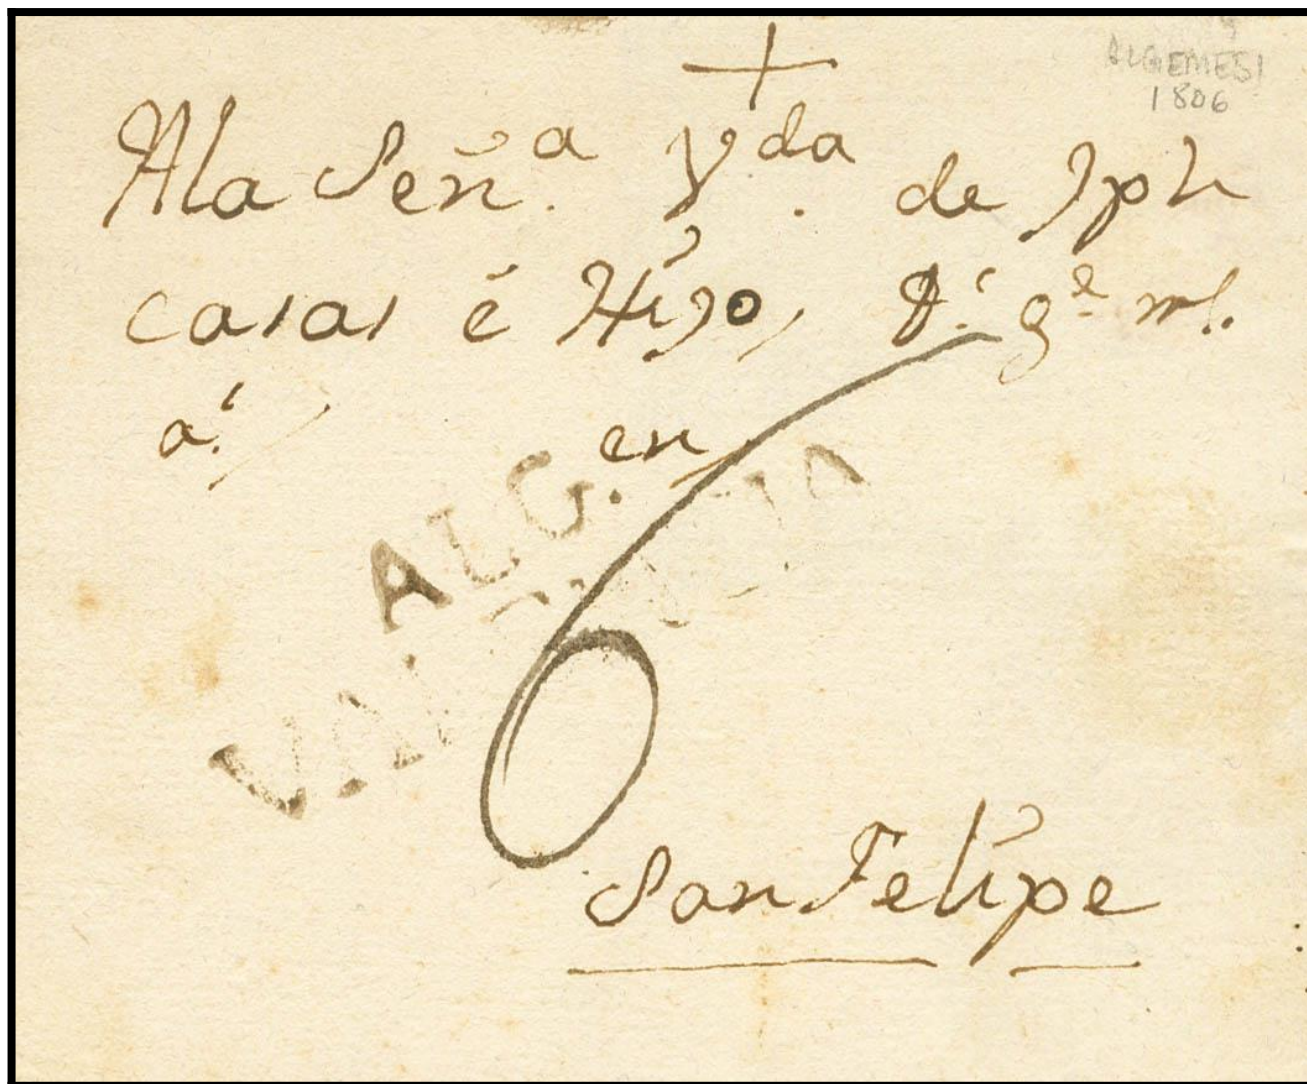 ALGEMESI
1806
+
A la Señ.ª V.da de Jph
Casas é Hijo, D.s g.e m.s
a.s
en
ALG.
VALENCIA
6
San Felipe